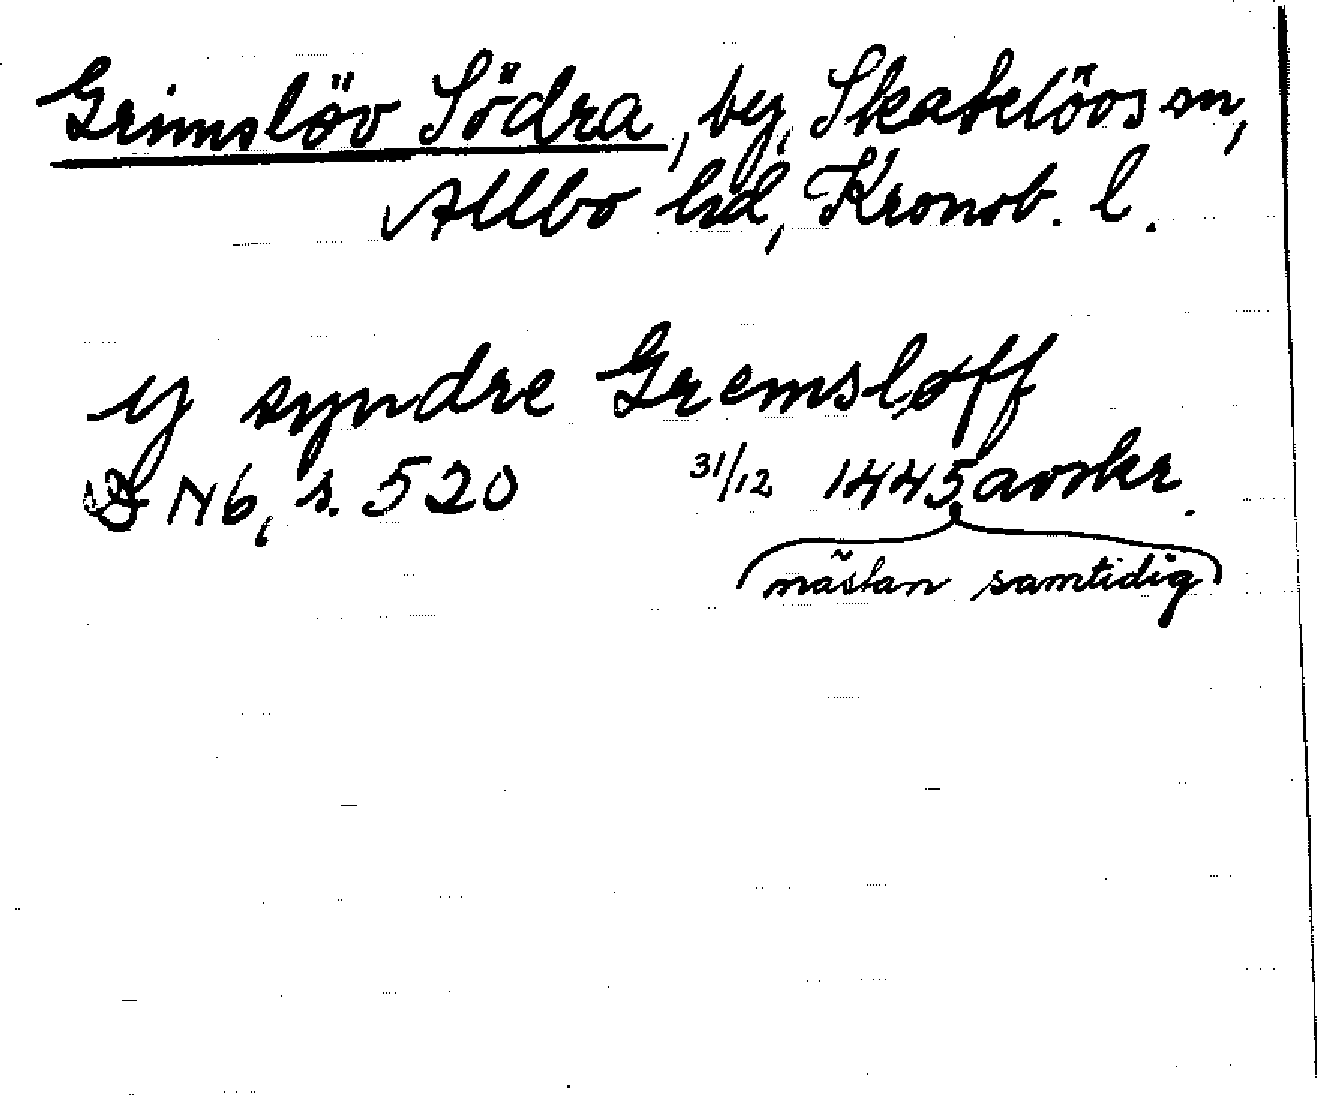 Grimslöv Södra, by, Skatelövs sn,
Allbo hd, Kronob. l.
y syndre Gremsløff
DN 6, s. 520 31/12 1445 avskr.
nästan samtidig